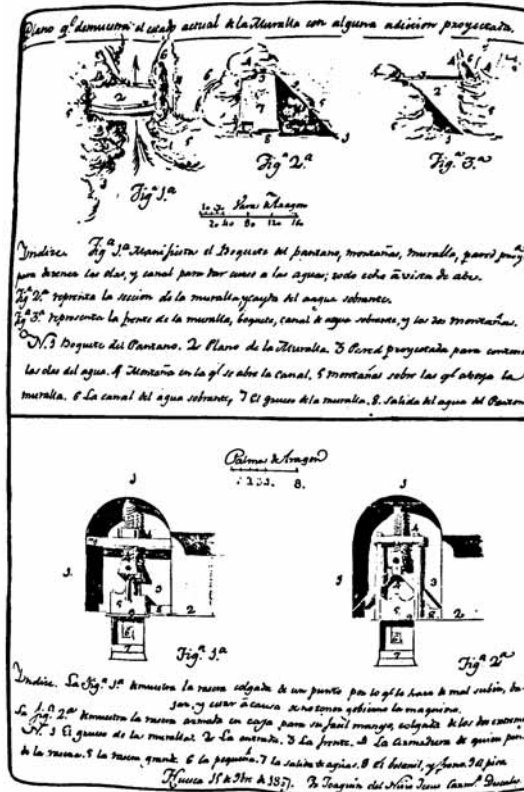 Plano q.e demuestra el estado actual de la Muralla con alguna adicion proyectada.
1 2 3 4 5 6
Fig.a 1.a
3 4 5 7 8
Fig.a 2.a
2 5 6 1
Fig. 3.a
Varas de Aragon
20 40 80 120 160
Yndize. Fig.a 1.a Manifiesta el Boquete del pantano, montañas, muralla, pared proy
para detener las olas, y canal para dar curso a las aguas; todo echo a vista de abe.
Fig.a 2.a reprenta la seccion de la muralla, y cayda del agua sobrante.
Fig.a 3.a representa la frente de la muralla, boquete, canal de agua sobrante, y las dos montañas.
Boquete del Pantano. 2 Plano de la Muralla. 3 Pared proyectada para contener
las olas del agua. 4 Montaña en la q.l se abre la Canal. 5 montañas sobre las q.l apoya la
muralla. 6 La canal del agua sobrante, 7 El grueso de la muralla. 8. Salida del agua del Pantano
Palmos de Aragon
1 2 3 8.
Fig.a 1.a
Fig.a 2.a
Yndize. La Fig.a 1.a demuestra la rasera colgada de un punto por lo q.l se haze de mal subir, ba
jar, y estar a causa de no tener gobierno la maquina.
La fig.a 2.a demuestra la rasera armada en caja para su facil manejo, colgada de los dos extremos
N. 1 El grueso de las murallas. 2 La entrada. 3 La frente. 4 La armadura de quien pen
de la rasera. 5 la rasera grande. 6 la pequeña. 7 la salida de aguas. 8
Huesca 15 de 9bre de Fr. Joaquin del Niño Jesus Carm.a Descalzo